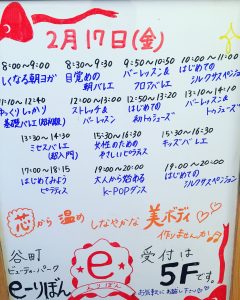 2月17日(金)
8:00〜9:00 8:30〜9:30 9:50〜10:50 10:00〜11:00
しくなる朝ヨガ 目覚めの朝バレエ バーレッスン&フロアバレエ はじめてのシルクサスペンション
11:10〜12:40 12:00〜13:00 12:50〜13:20 13:10〜14:10
ゆっくりしっかり基礎バレエ ストレッチ&バーレッスン はじめての初トゥシューズ バーレッスン&トゥシューズ
13:30〜14:30 15:30〜16:30 15:30〜16:30
ミセスバレエ(超入門) 女性のためのやさしいピラティス キッズバレエ
17:15〜18:15 19:00〜20:00 19:00〜20:00
はじめてみようピラティス 大人から始めるK-POPダンス はじめてのシルクサスペンション
芯から温め しなやかな美ボディ♡
作りませんか♪
谷町
ビューティーパーク
e-りぼん
e
受付は
5Fです。
お気軽にお越し下さい